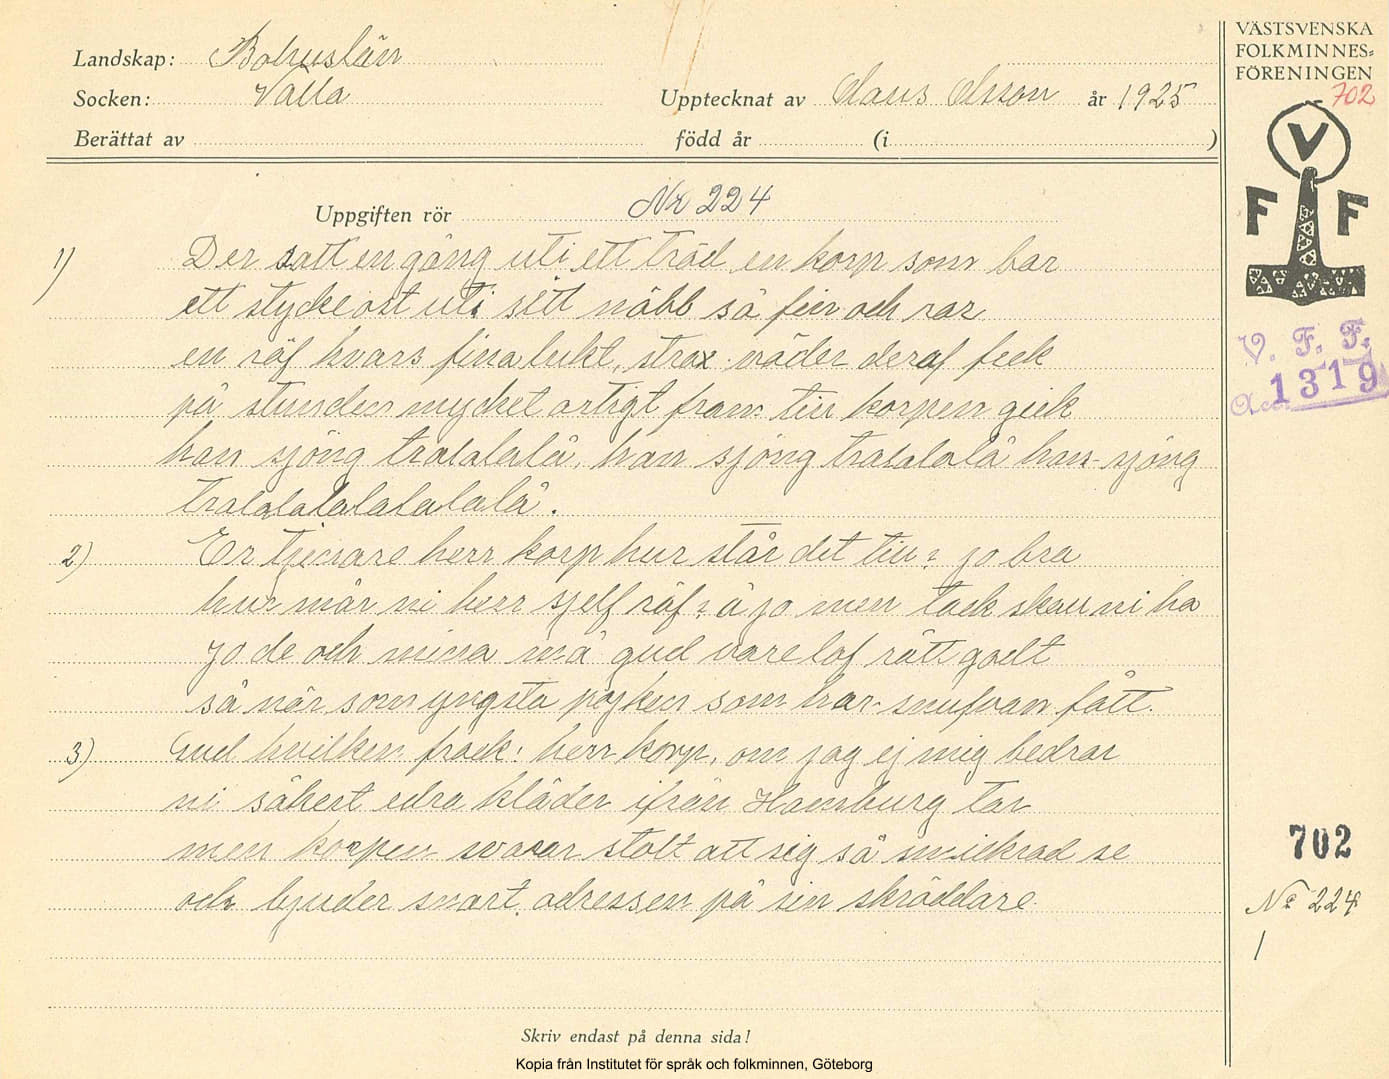 Landskap: Bohuslän
Socken: Valla
Upptecknat av Claus Olsson år 1925
Berättat av
född år (i )
VÄSTSVENSKA
FOLKMINNES=
FÖRENINGEN
702
V
F F
V. F. F.
Acc. 1319
Uppgiften rör Nr 224
1) Der satt en gång uti ett träd en korp som bar
ett stycke ost uti sitt näbb så fin och rar
en räf hvars fina lukt, strax väder deraf feck
på stunden mycket artigt fram till korpen gick
han sjöng tralalalala, han sjöng tralalala han sjöng
tralalalalalalala.
2) Er tjenare herr korp hur står det till? jo bra
hur mår ni herr sjelf räf? å jo men tack skall ni ha
jo de och mina må gud vare lof rätt godt
så när som yngsta pojken som har snufvan fått.
3) Gud hvilken frack! herr korp, om jag ej mig bedrar
ni säkert edra kläder ifrån Hamburg tar
men korpen svarar stolt att sig så smickrad se
och bjuder snart adressen på sin skräddare
702
No 224
1
Skriv endast på denna sida!
Kopia från Institutet för språk och folkminnen, Göteborg